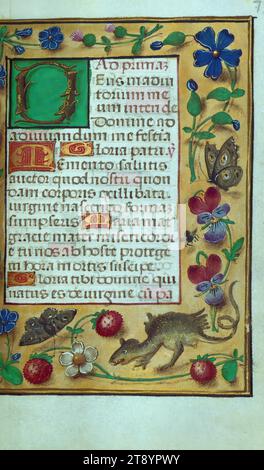 Ad primaz
Deus in adiu
torium me
um intende
Domine ad
adiuvandum me festia
Gloria patri z
Memento salutis
auctor quod nostri quon
dam corporis ex illibata
virgine nascendo formaz
sumpseris Maria mat
gracie mater misericordie
tu nos ab hoste protege
et hora mortis suscipe
Gloria tibi domine qui
natus es de virgine cu pa
alamy
Image ID: 2T8YPWY
www.alamy.com